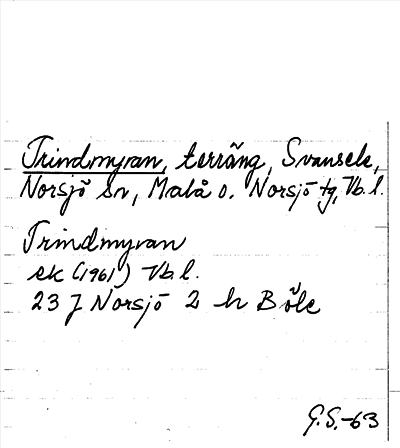 Trindmyran, terräng, Svansele,
Norsjö sn, Malå o. Norsjö tg, Vb.l.
Trindmyran
ek (1961) Vb l.
23 J Norsjö 2 h Böle
G.S.-63